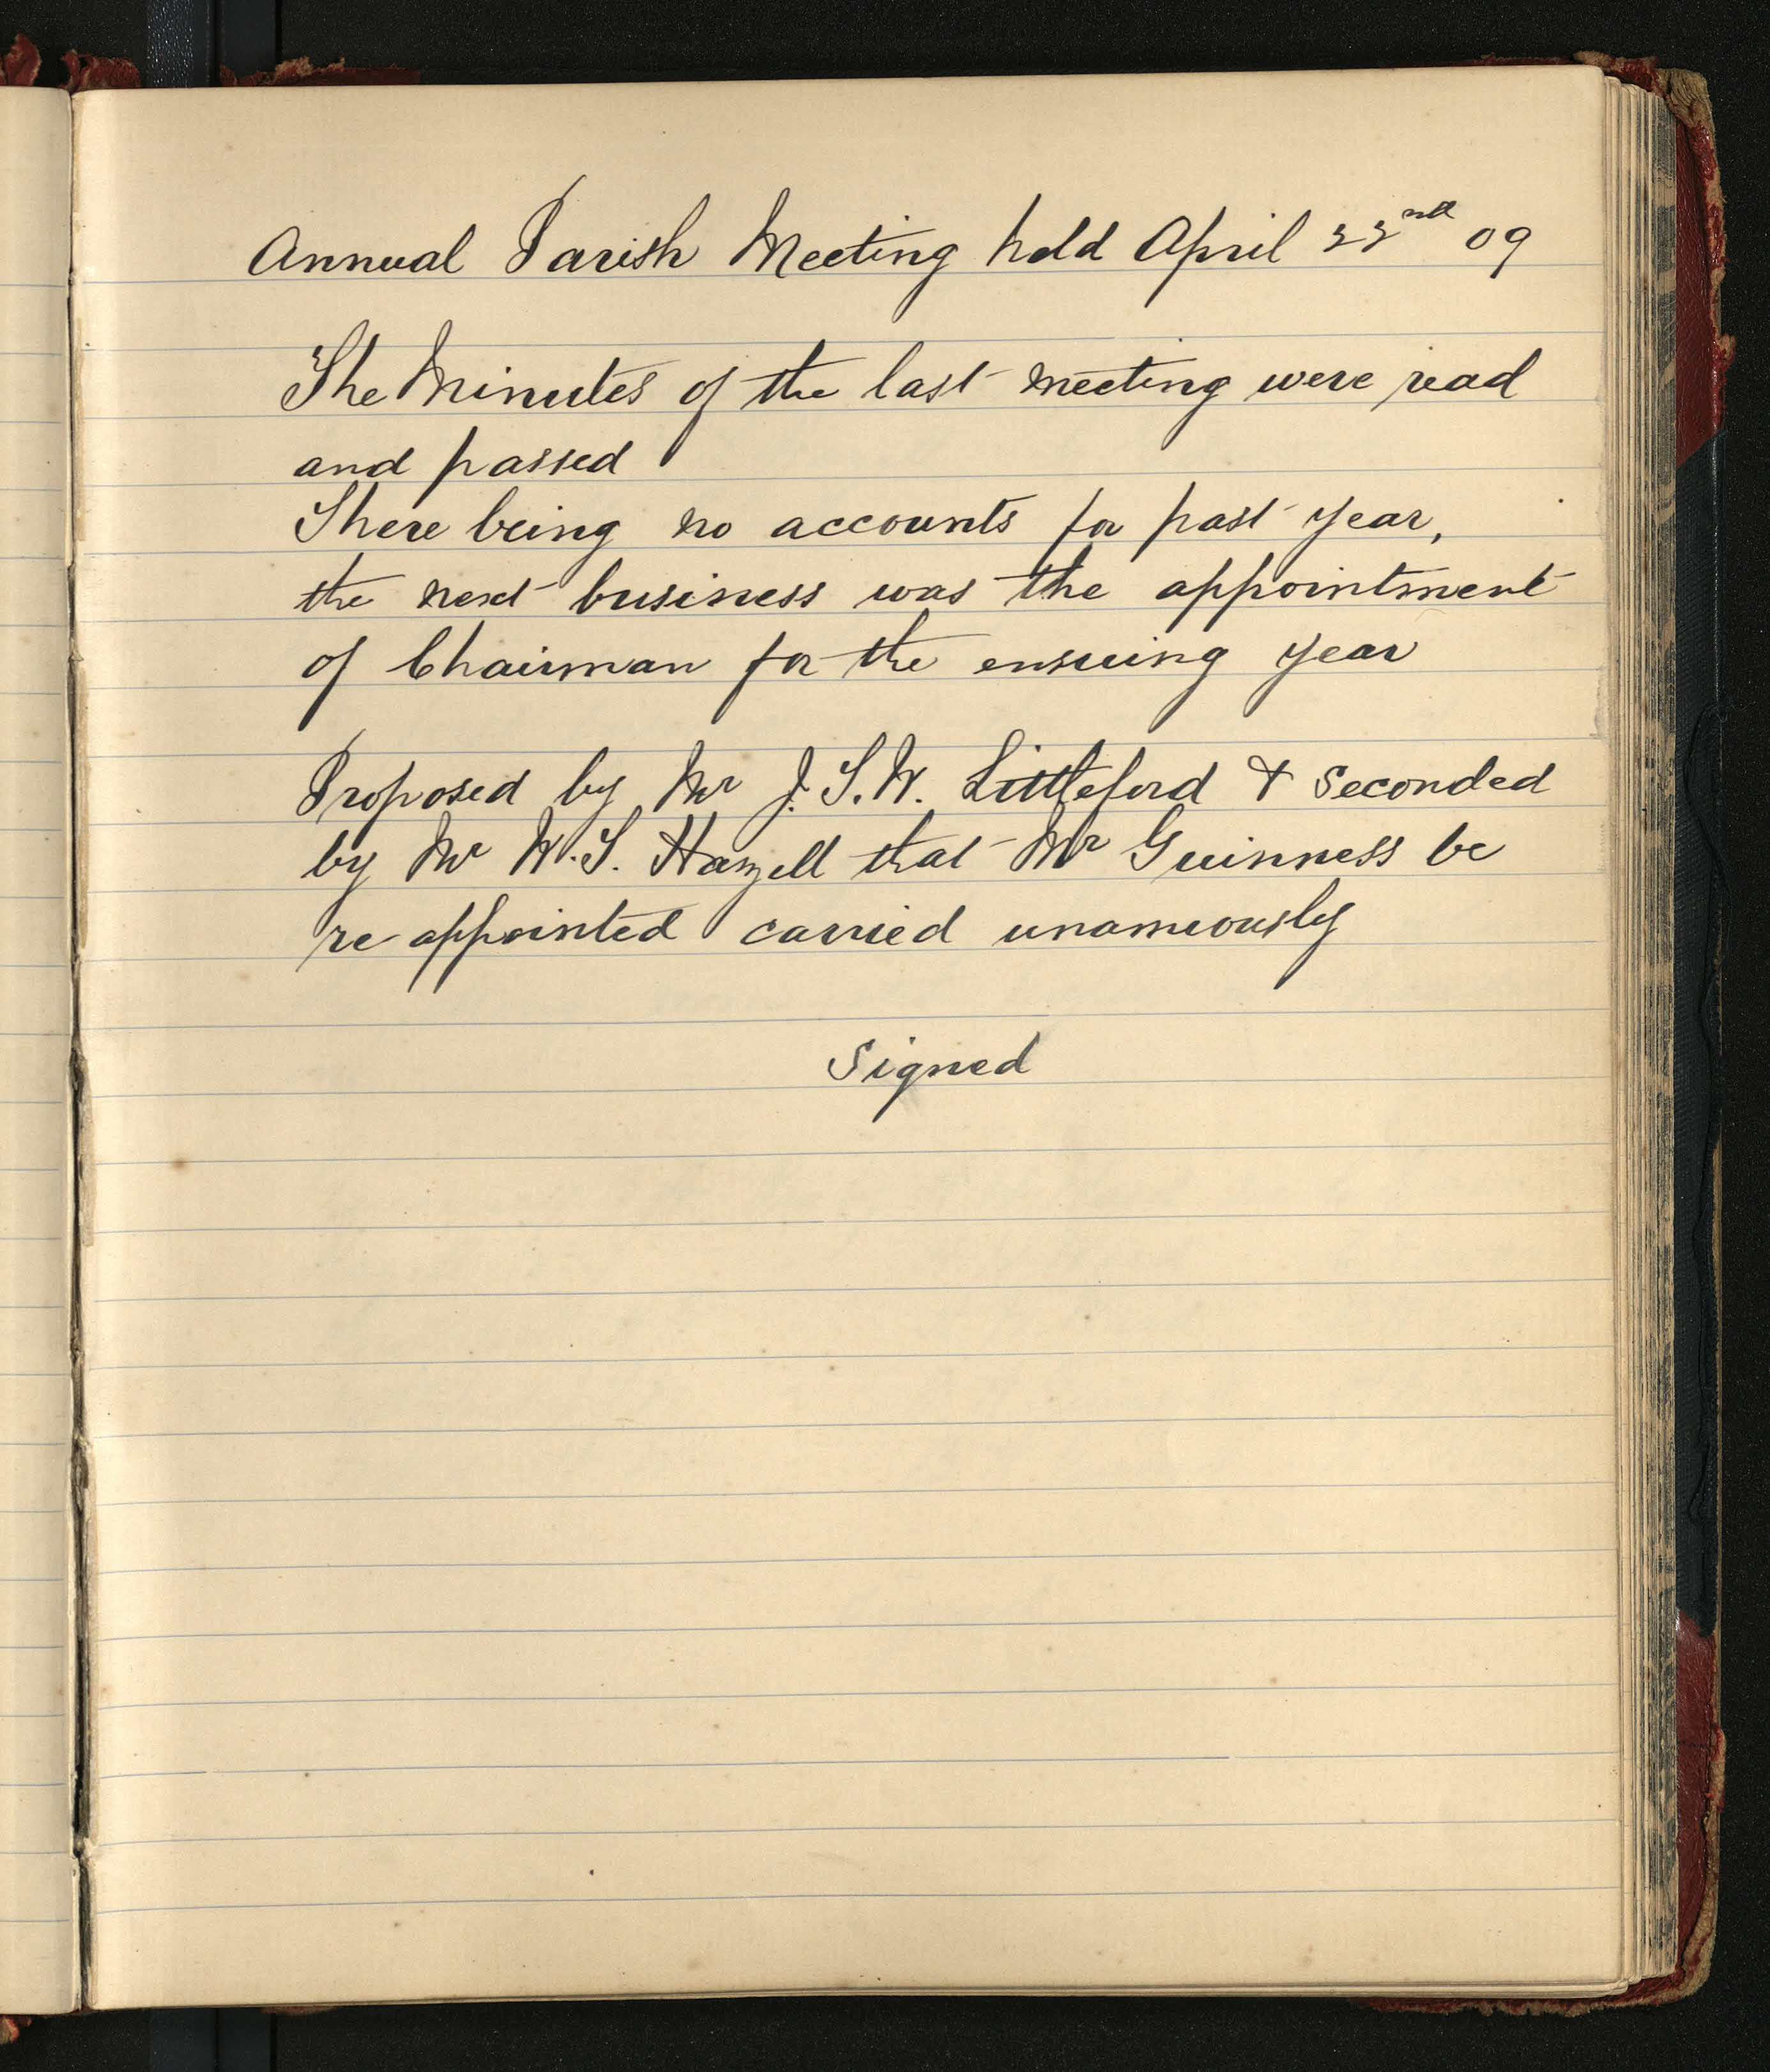 Annual Parish Meeting held April 22nd 09
The Minutes of the last meeting were read
and passed
There being no accounts for past year,
the next business was the appointment
of Chairman for the ensuing year
Proposed by Mr J. S. W. Littleford & Seconded
by Mr W. S. Hazell that Mr Guinness be
re-appointed carried unameously
Signed